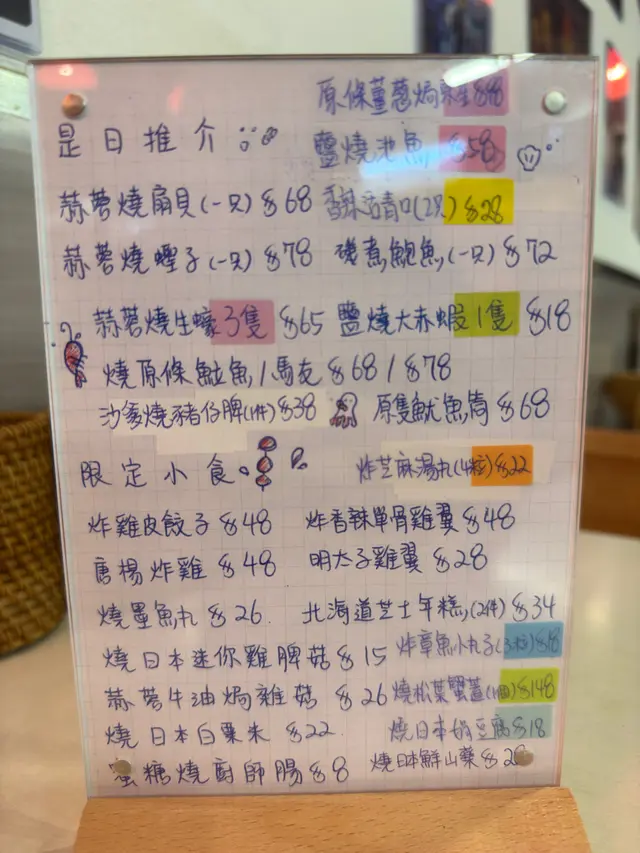 原條薑蔥焗
是日推介
鹽燒池魚 $58
蒜蓉燒扇貝(一只) $68 香辣活青口(2只) $28
蒜蓉燒蟶子(一只) $78 磯煮鮑魚(一只) $72
蒜蓉燒生蠔3隻 $65 鹽燒大赤蝦1隻 $18
燒原條魚/馬友 $68/$78
沙爹燒豬仔脾(1件) $38 原隻魷魚筒 $68
限定小食
炸芝麻湯丸(4粒) $22
炸雞皮餃子 $48 炸香辣單骨雞翼 $48
唐楊炸雞 $48 明太子雞翼 $28
燒墨魚丸 $26 北海道芝士年糕(2件) $34
燒日本迷你雞脾菇 $15 炸章魚小丸子(3粒) $18
蒜蓉牛油焗雜菇 $26 燒松葉蟹蓋(1個) $48
燒日本白粟米 $22 燒日本絹豆腐 $18
蜜糖燒廚師腸 $8 燒日本鮮山藥 $28